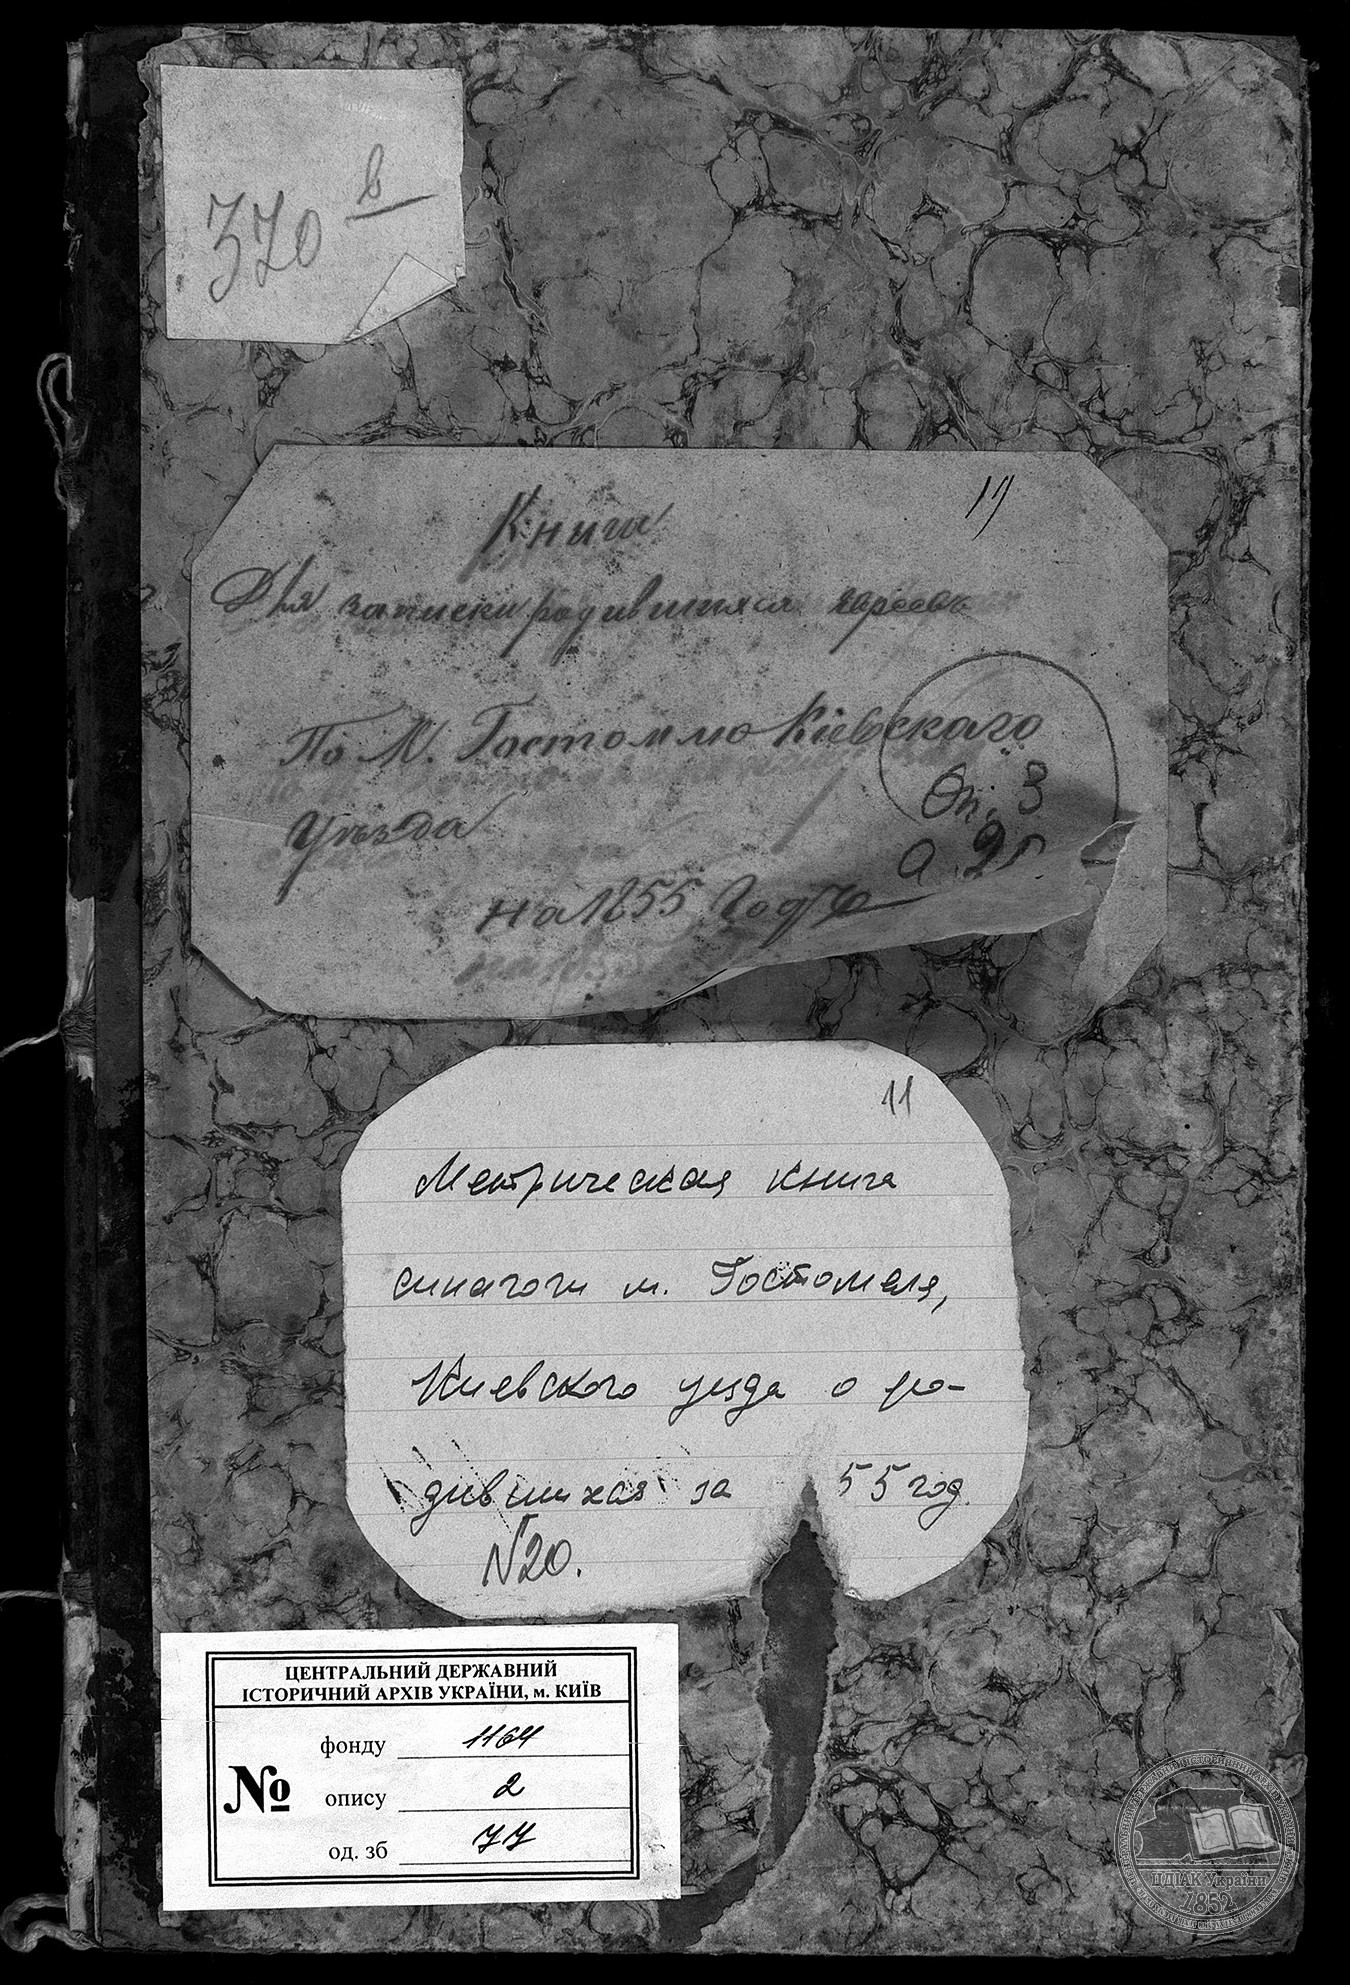 370 в
17
Книга
Для записки родившихся евреевъ
По М. Гостомлю Кіевскаго
Уѣзда
на 1855 Годъ
Оп. 3
а. 2
11
Метрическая книга
синагоги м. Гостомеля,
Киевского уезда о ро-
дившихся за 55 год.
N20.
ЦЕНТРАЛЬНИЙ ДЕРЖАВНИЙ
ІСТОРИЧНИЙ АРХІВ УКРАЇНИ, м. КИЇВ
№
фонду 1164
опису 2
од. зб 77
ЦДІАК України
1852